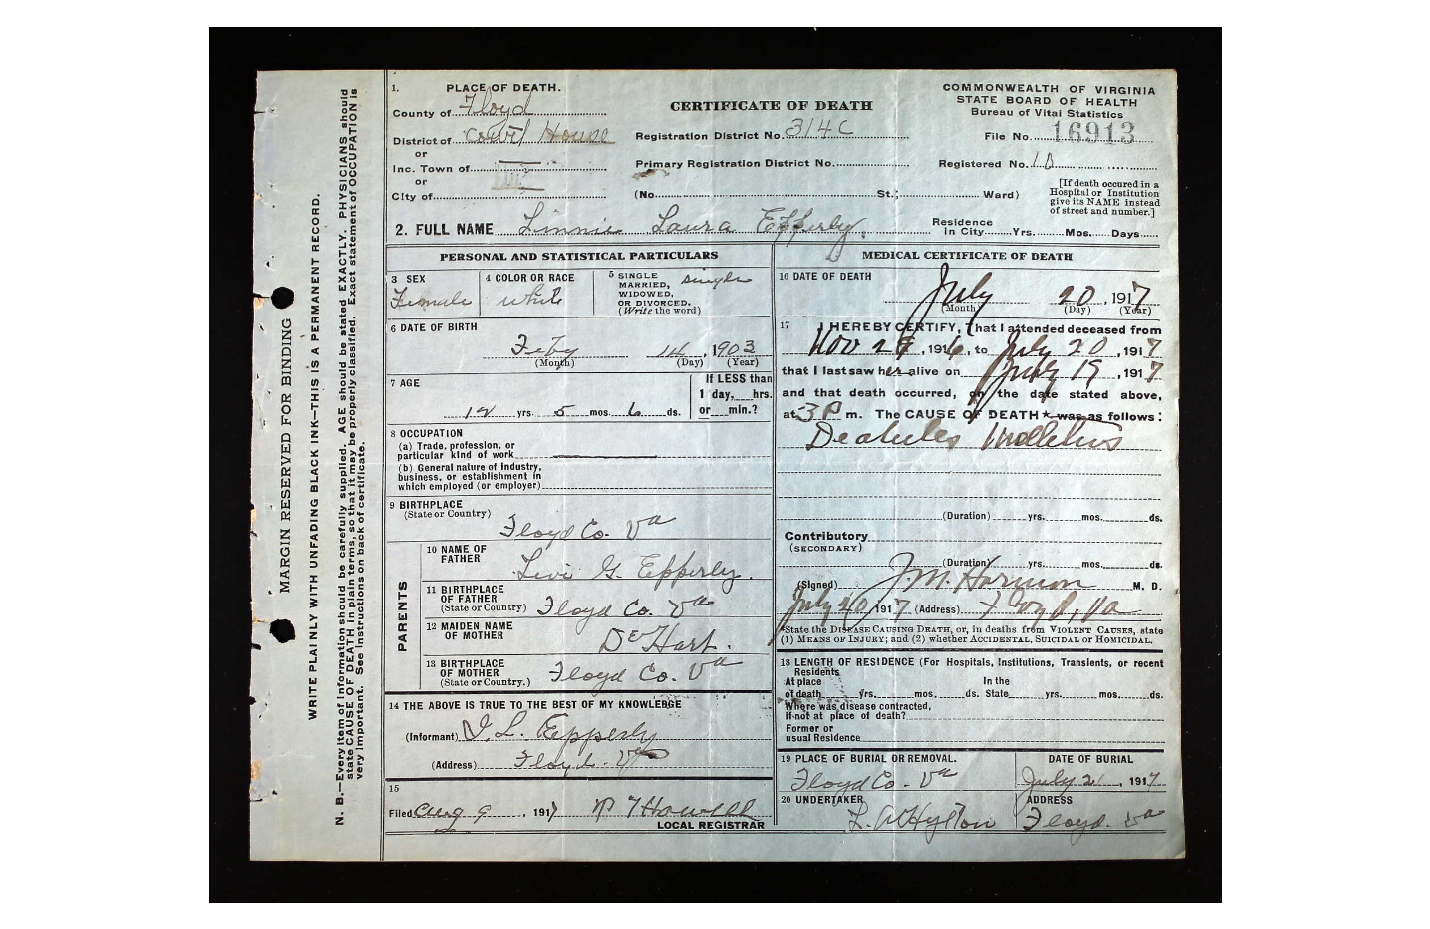 MARGIN RESERVED FOR BINDING
WRITE PLAINLY WITH UNFADING BLACK INK—THIS IS A PERMANENT RECORD.
N. B.—Every item of information should be carefully supplied. AGE should be stated EXACTLY. PHYSICIANS should
state CAUSE OF DEATH in plain terms, so that it may be properly classified. Exact statement of OCCUPATION is
very important. See instructions on back of certificate.
1. PLACE OF DEATH.
County of Floyd
District of Court House
or
Inc. Town of
or
City of
CERTIFICATE OF DEATH
Registration District No. 314C
Primary Registration District No.
(No. St.; Ward)
COMMONWEALTH OF VIRGINIA
STATE BOARD OF HEALTH
Bureau of Vital Statistics
File No. 16913
Registered No. 10
[If death occured in a
Hospital or Institution
give its NAME instead
of street and number.]
2. FULL NAME Linnie Laura Epperly.
Residence
In City Yrs. Mos. Days
PERSONAL AND STATISTICAL PARTICULARS
3 SEX
Female
4 COLOR OR RACE
White
5 SINGLE
MARRIED,
WIDOWED,
OR DIVORCED.
(Write the word)
Single
6 DATE OF BIRTH
Feby 14, 1903
(Month) (Day) (Year)
7 AGE
12 yrs. 5 mos. 6 ds.
If LESS than
1 day, hrs.
or min.?
8 OCCUPATION
(a) Trade, profession, or
particular kind of work
(b) General nature of Industry,
business, or establishment in
which employed (or employer)
9 BIRTHPLACE
(State or Country)
Floyd Co. Va
PARENTS
10 NAME OF
FATHER
Livi G. Epperly.
11 BIRTHPLACE
OF FATHER
(State or Country) Floyd Co. Va
12 MAIDEN NAME
OF MOTHER
DeHart.
13 BIRTHPLACE
OF MOTHER
(State or Country.) Floyd Co. Va
14 THE ABOVE IS TRUE TO THE BEST OF MY KNOWLEDGE
(Informant) L. Epperly
(Address) Floyd. Va
15
Filed Aug 9, 1917 Howell
LOCAL REGISTRAR
MEDICAL CERTIFICATE OF DEATH
16 DATE OF DEATH
July 20, 1917
(Month) (Day) (Year)
17 I HEREBY CERTIFY, That I attended deceased from
Nov, 1916, to July 20, 1917
that I last saw her alive on July 19, 1917
and that death occurred, on the date stated above,
at 3 P m. The CAUSE OF DEATH★ was as follows:
Deabutes Melletus
(Duration) yrs. mos. ds.
Contributory
(SECONDARY)
(Duration) yrs. mos. ds.
(Signed) J.M. Harmon M. D.
July 20, 1917 (Address) Floyd, Va
*State the DISEASE CAUSING DEATH, or, in deaths from VIOLENT CAUSES, state
(1) MEANS OF INJURY; and (2) whether ACCIDENTAL, SUICIDAL or HOMICIDAL.
18 LENGTH OF RESIDENCE (For Hospitals, Institutions, Transients, or recent
Residents
At place In the
of death yrs. mos. ds. State yrs. mos. ds.
Where was disease contracted,
if not at place of death?
Former or
usual Residence
19 PLACE OF BURIAL OR REMOVAL.
Floyd Co. Va
DATE OF BURIAL
July 21, 1917
20 UNDERTAKER
L. A Hylton
ADDRESS
Floyd. Va